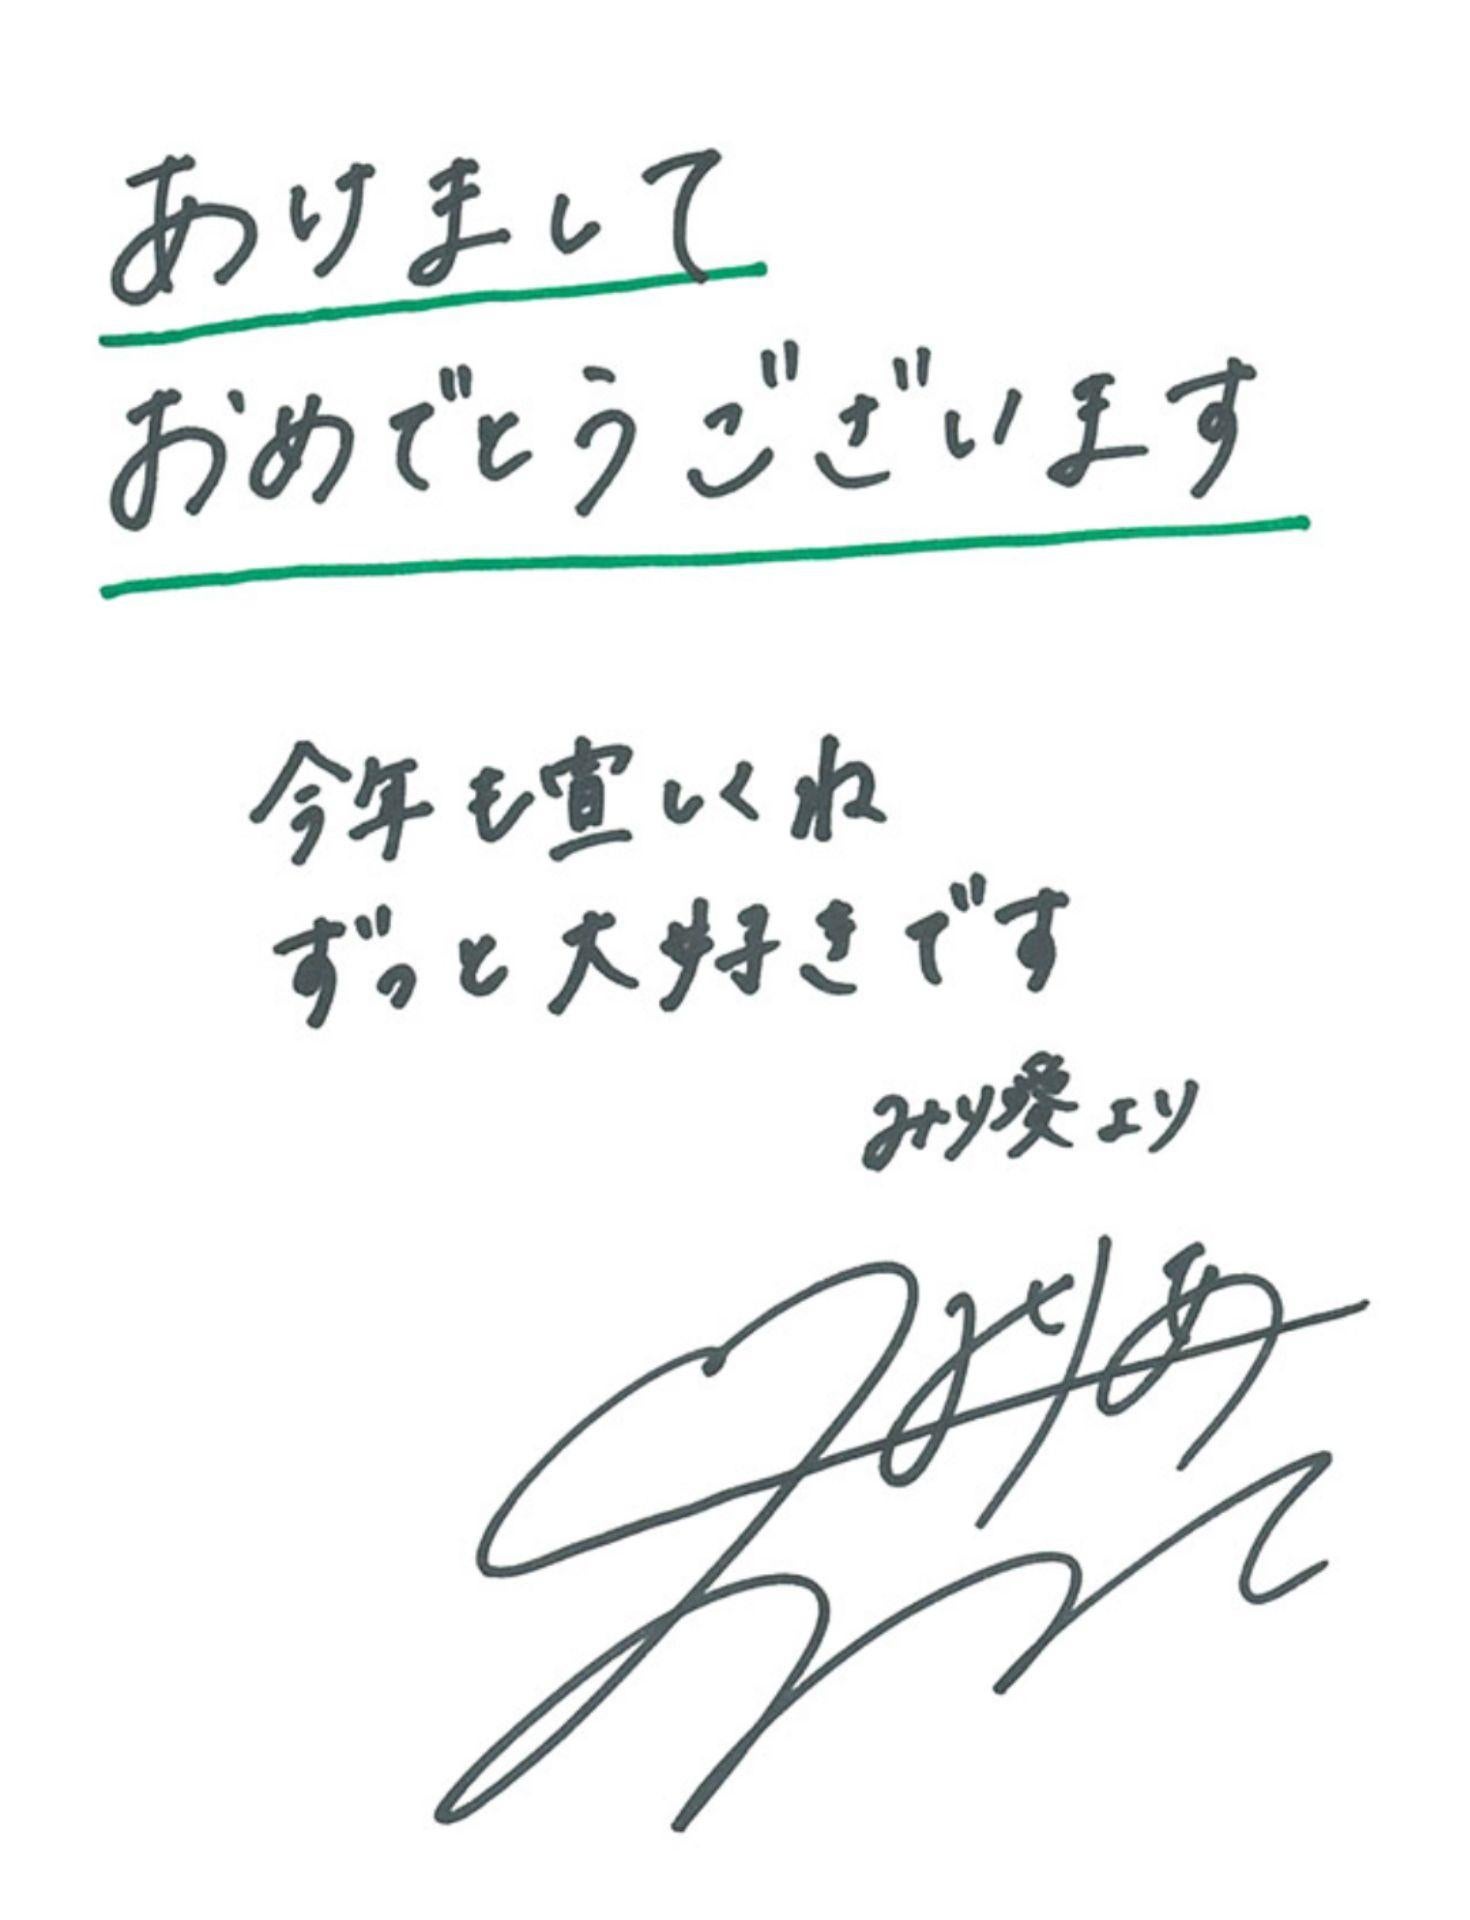 あけまして
おめでとうございます
今年も宜しくね
ずっと大好きです
みり愛より
みりあ